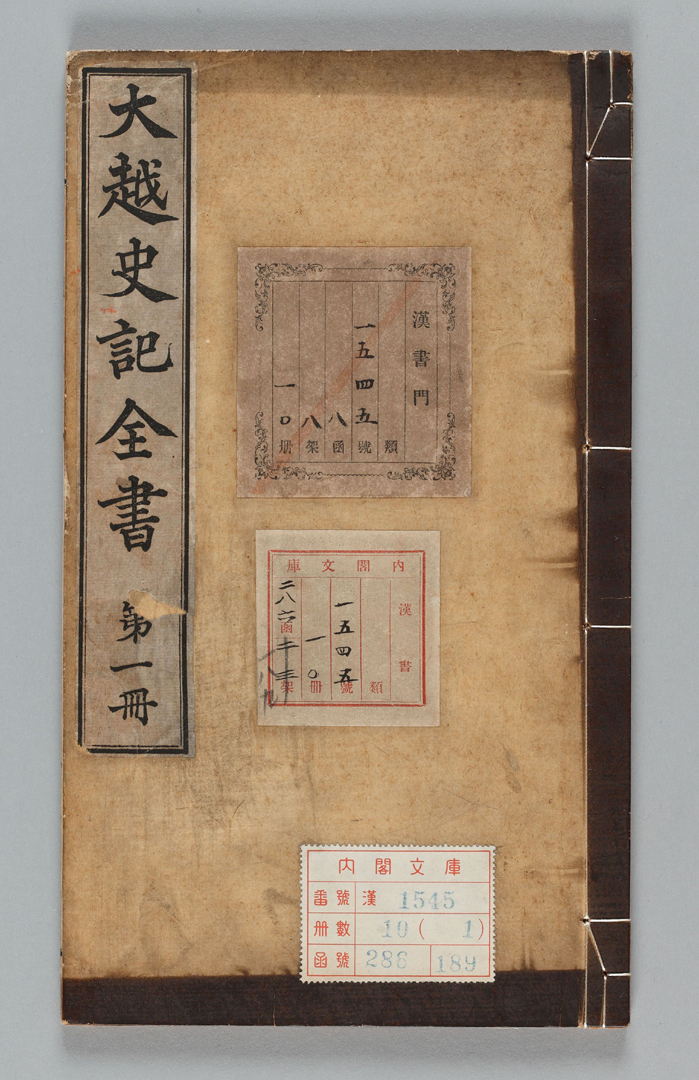 大越史記全書 第一冊
漢書門
類
一五四五號
八函
八架
一〇册
内閣文庫
漢書
類
一五四五號
一〇册
二八六函二三架
一八九
内閣文庫
番號 漢 1545
册數 10 ( 1)
函號 286 189